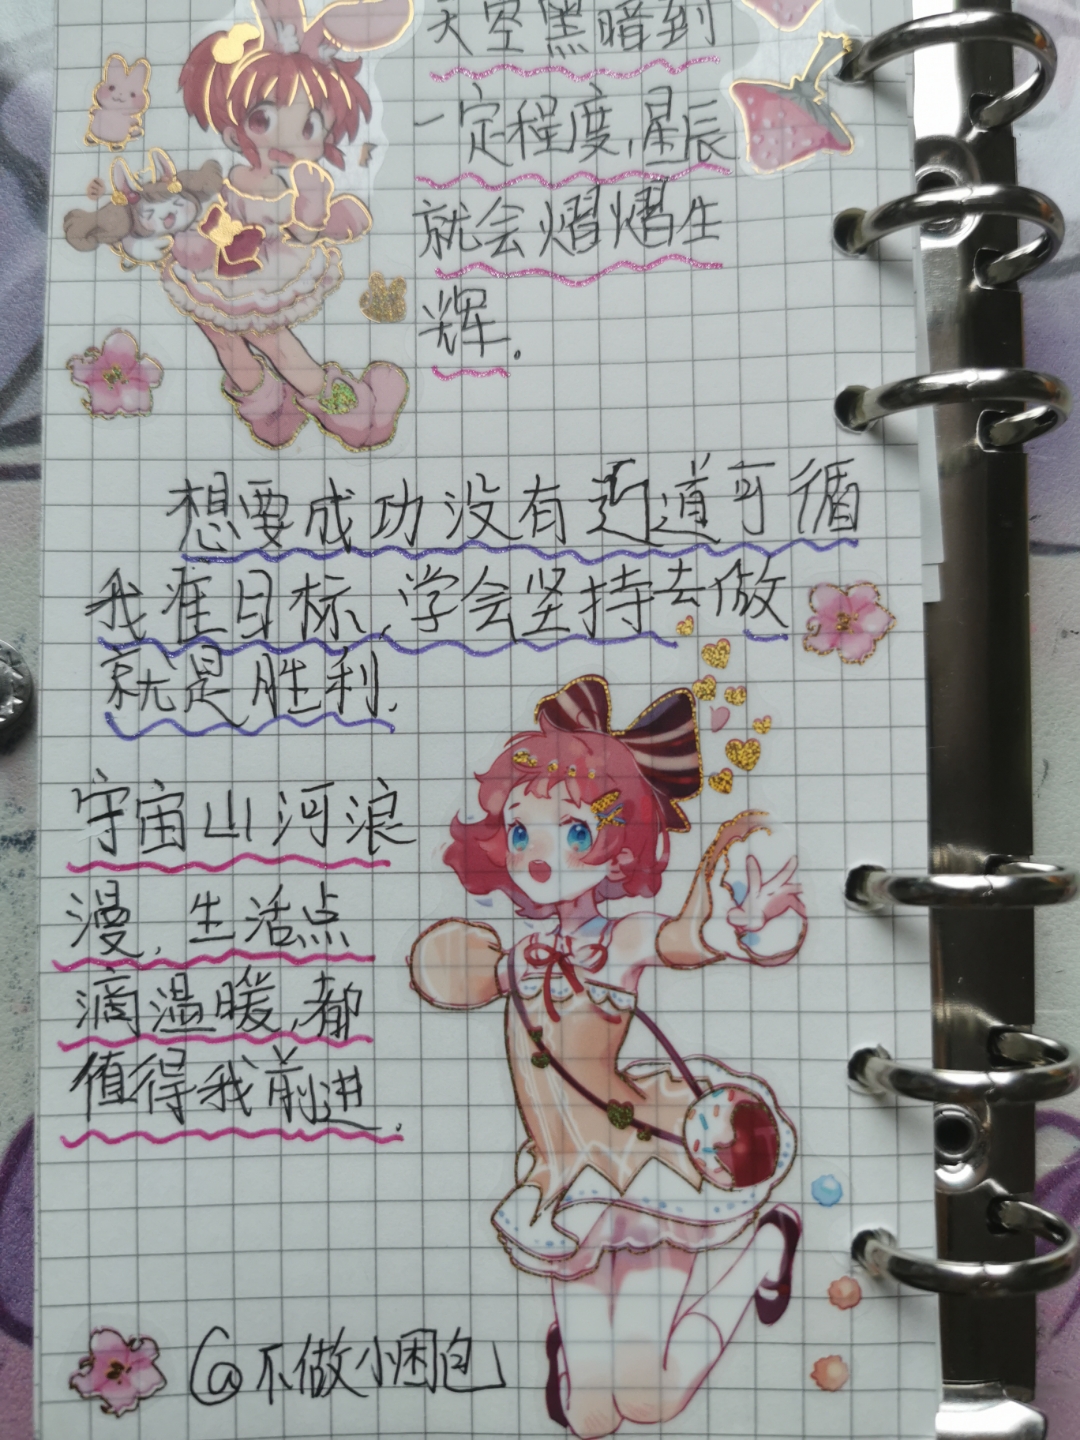 天空黑暗到
一定程度,星辰
就会熠熠生
辉.
想要成功没有近道可循
我准目标,学会坚持去做
就是胜利.
宇宙山河浪
漫,生活点
滴温暖,都
值得我前进.
@不做小困包